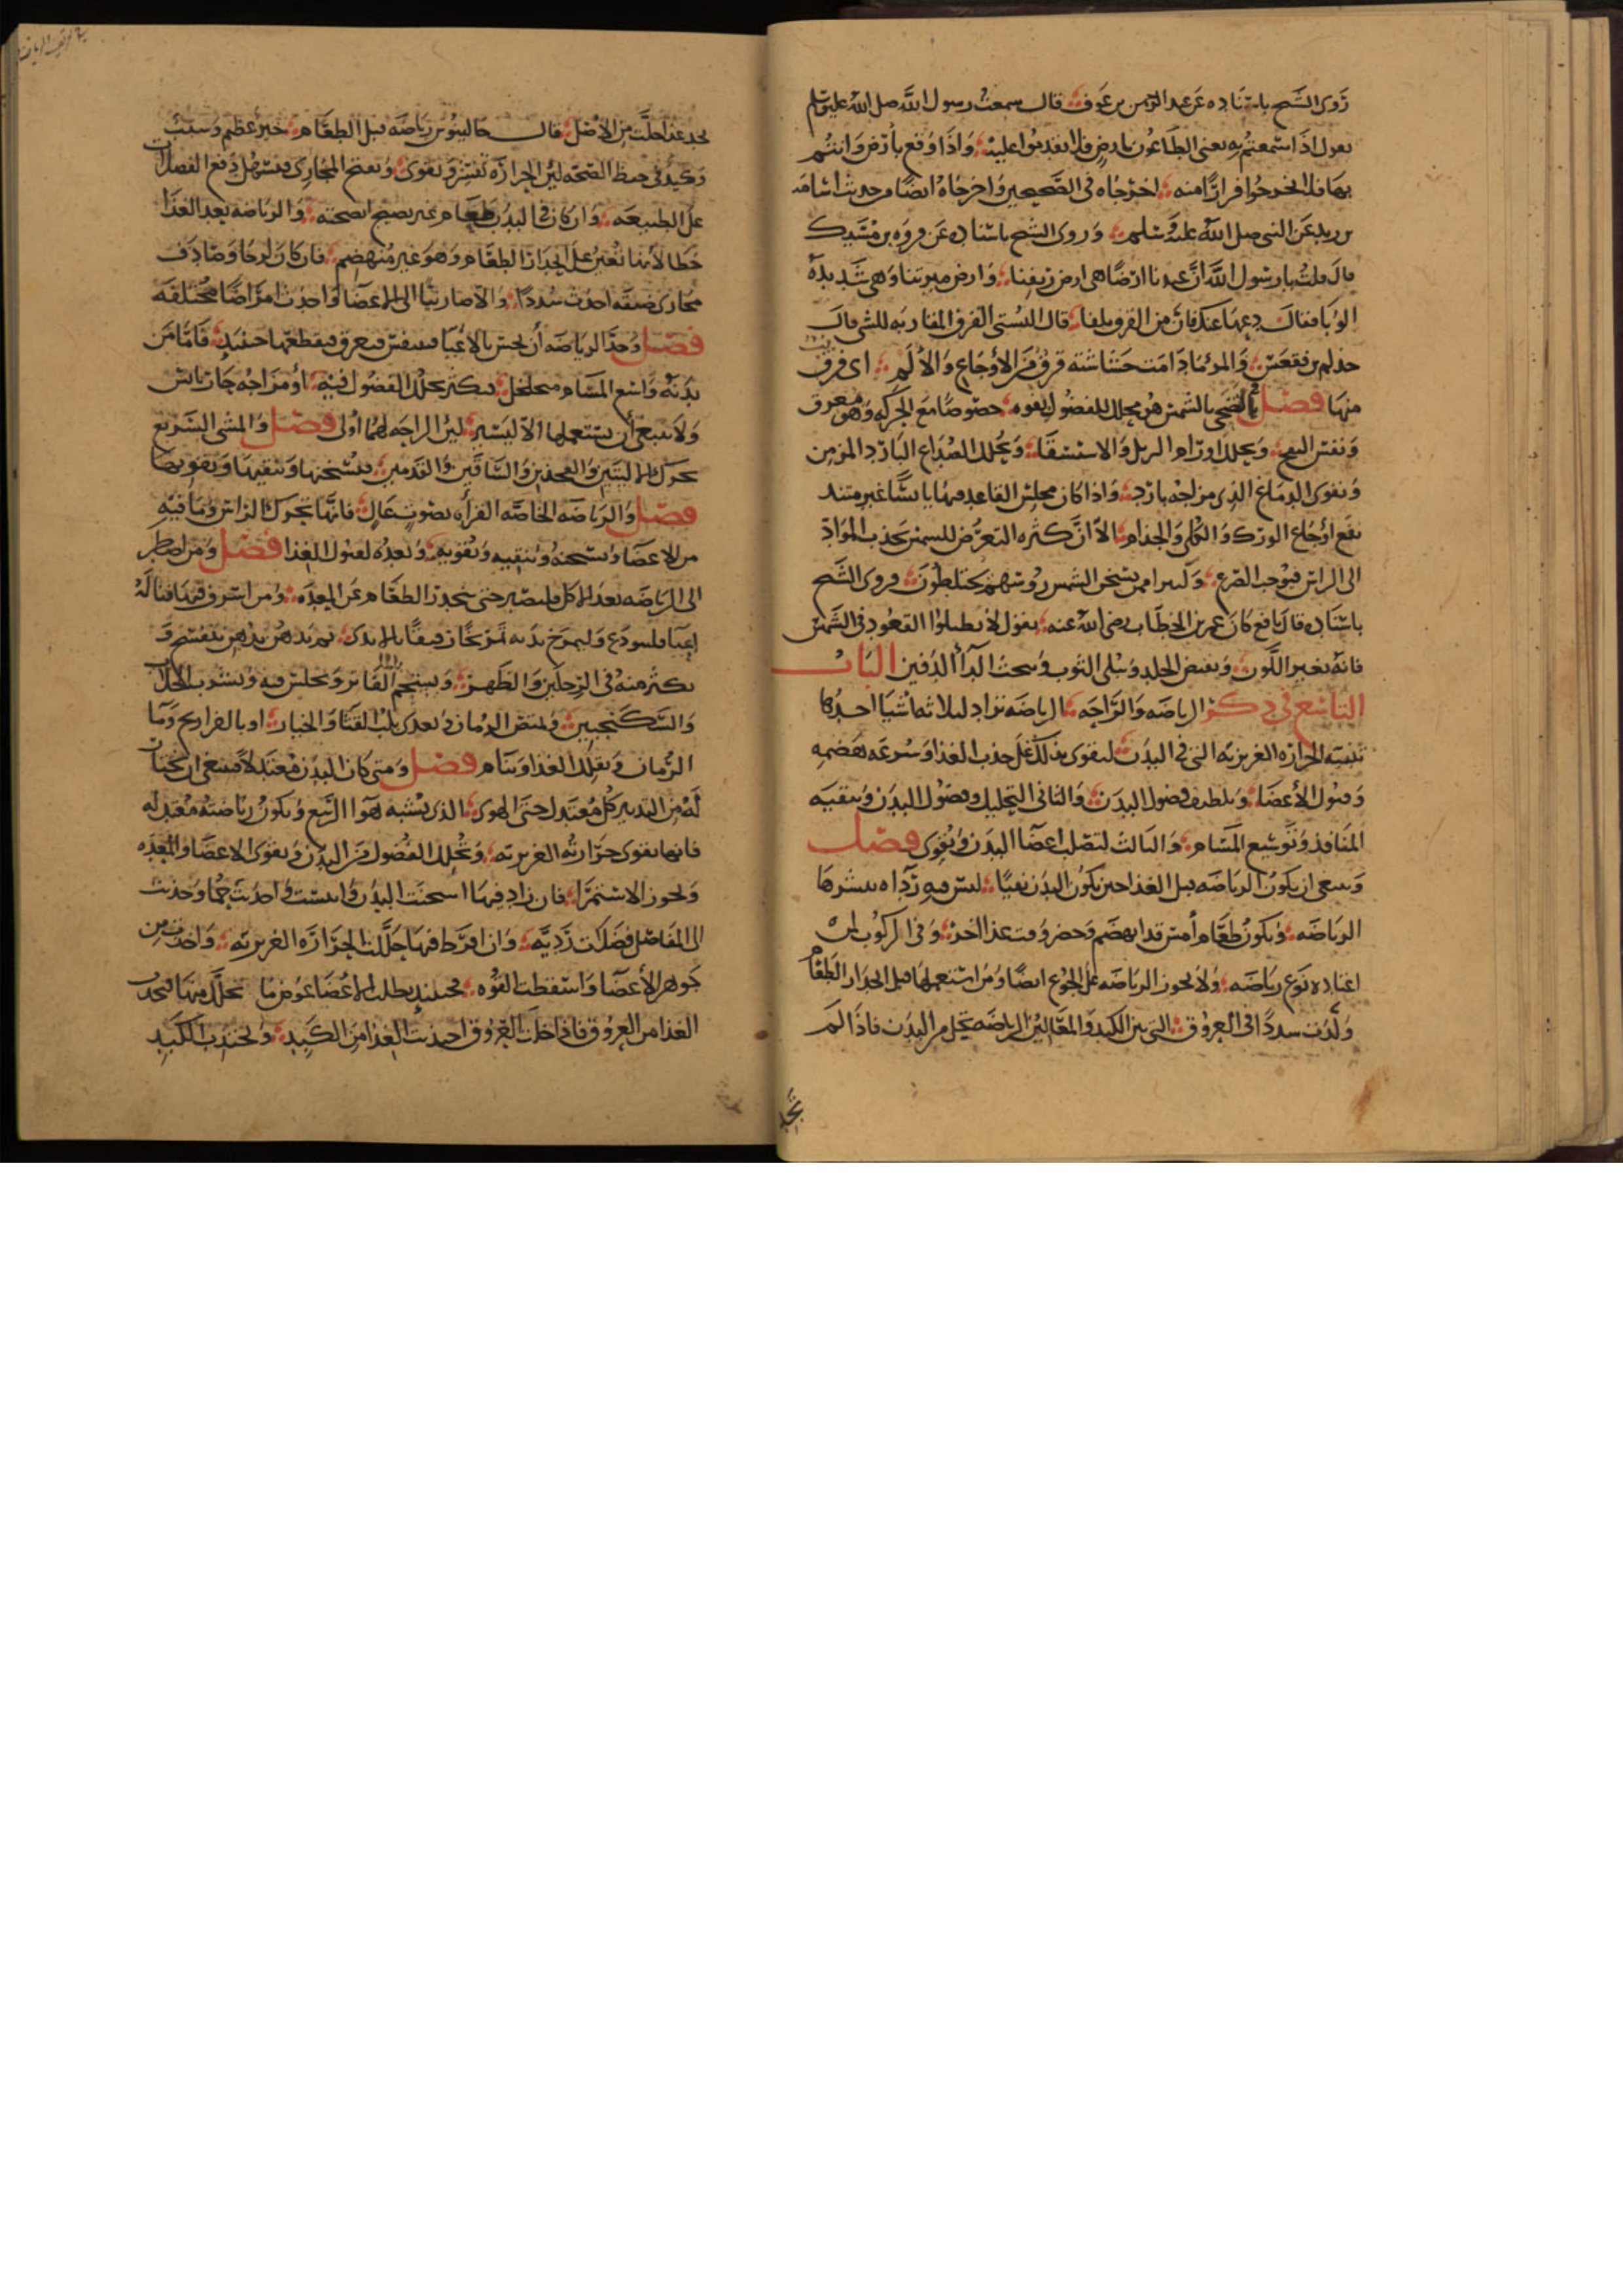 روى الشيخ باسناده عن عبد الرحمن بن عوف قال سمعت رسول الله صلى الله عليه وسلم
يقول اذا سمعتم به يعني الطاعون بارض فلا تقدموا عليه واذا وقع بارض وانتم
بها فلا تخرجوا فرارا منه اخرجاه في الصحيحين واخرجاه ايضا من حديث اسامه
بن زيد عن النبي صلى الله عليه وسلم وروى الشيخ باسناده عن فروه بن مسيك
قال قلت يا رسول الله ان عندنا ارضا هي ارض ريفنا وارض ميرتنا وهي شديده
الوبا فقال دعها عنك فان من القرف تلفا قال البستي القرف المقاربه للشي قال
والمرء ما دامت حشاشته قرف من الاوجاع والالم اي قرف
منها فصل التضحي بالشمس هو محلل للفضول بقوه خصوصا مع الحركه وهو معرق
ونفش البدن ويحلل اورام الرجل والاستسقا ويحلل الصداع البارد المزمن
وتقوى الدماغ الذي مزاجه بارد واذا كان مجلس القاعد فيها يابسا غير متند
نفع اوجاع الورك والكلى والجذام الا ان كثره التعرض للشمس تجذب المواد
الى الراس فيوجب الصرع يسخن الشمس روسهم يختلطون وروى الشيخ
باسناده قال نافع كان عمر بن الخطاب رضي الله عنه يقول لا تطيلوا القعود في الشمس
فانه يغير اللون ويقبض الجلد ويبلى الثوب ويبحث الدا الدفين الباب
التاسع في ذكر الرياضه والراحه الرياضه تراد لثلاثه اشيا احدها
تنبيه الحراره الغريزيه التي في البدن ليقوى بذلك على جذب الغذا وسرعه هضمه
وقبول الاعضا وتلطف فضول البدن والثاني لتحليل فضول البدن وتنقيه
المنافذ وتوسيع المسام والثالث لتصلب اعضا البدن وتقوى فصل
وينبغي ان يكون الرياضه قبل الغذا حين يكون البدن نقيا ليس فيه رداه ينشرها
الرياضه ويكون طعام امس قد انهضم وحضر وقت غذا اخر وفي الركوب لمن
اعتاده نوع رياضه ولا يجوز الرياضه على الجوع ايضا ومن استعملها قبل انحدار الطعام
ولدت سددا في العروق التي بين الكبد والمعا لان الرياضه تحلل من البدن فاذا لم
تجد
تجد غذا حللت من الاصل قال جالينوس رياضه قبل الطعام خير عظيم وسبب
وكيد في حفظ الصحه لان الحراره تنتشر وتقوى وتفتح المجاري فتسهل دفع الفضلات
على الطبيعه وان كان في البدن طعام غير نضيج انضجته والرياضه بعد الغذا
خطا لانها تعين على انحدار الطعام وهو غير منهضم فان كان لزجا وصادف
مجاري ضيقه احدث سددا والا صار نيا الى الاعضا واحدث امراضا مختلفه
فصل وحد الرياضه ان يحس بالاعيا فيتنفس فيعرق فيقطعها حينئذ فاما من
بدنه واسع المسام متخلخل يكثر تحلل الفضول فيه او مزاجه حار يابس
ولا ينبغي ان يستعملها الا اليسير لان الراحه لهما اولى فصل والمشي السريع
يحرك الاليتين والفخذين والساقين والقدمين يسخنها وتنقيها وتقويها
فصل والرياضه الخاصه القراه بصوت عال فانها تحرك الراس وما فيه
من الاعضا وتسخنه وتنقيه وتقويه وتعده لقبول الغذا فصل ومن اضطر
الى الرياضه بعد الاكل فليصبر حتى ينحدر الطعام عن المعده ومن اسرف فيها فناله
اعيا فليتودع وليمرخ بدنه تمريخا رفيقا بالايدي ثم يدهن بدهن بنفسج و
يكثر منه في الرجلين والظهر ويستحم بالفاتر ويجلس فيه ويشرب الجلاب
والسكنجبين ويمتص الرمان ويغذى بلب القثا والخيار او بالفراريج وما
الرمان ويقلل الغذا وينام فصل ومتى كان البدن معتدلا فينبغي ان يختار
له من التدبير كل معتدل حتى الهوى الذي يشبه هوا الربيع ويكون رياضته معتدله
فانها تقوى حرارته الغريزيه وتحلل الفضول من البدن وتقوى الاعضا والمعده
وتجود الاستمرا فان زاد فيها اسخنت البدن وايبست واحدثت حما وحدثت
الى المفاصل فضلات رديه وان افرط فيها حللت الحراره الغريزيه واخذت من
جوهر الاعضا واسقطت القوه فحينئذ يطلب الاعضا عوض ما تحلل منها فتجذب
الغذا من العروق فاذا خلت العروق اجذبت الغذا من الكبد وتجتذب الكبد